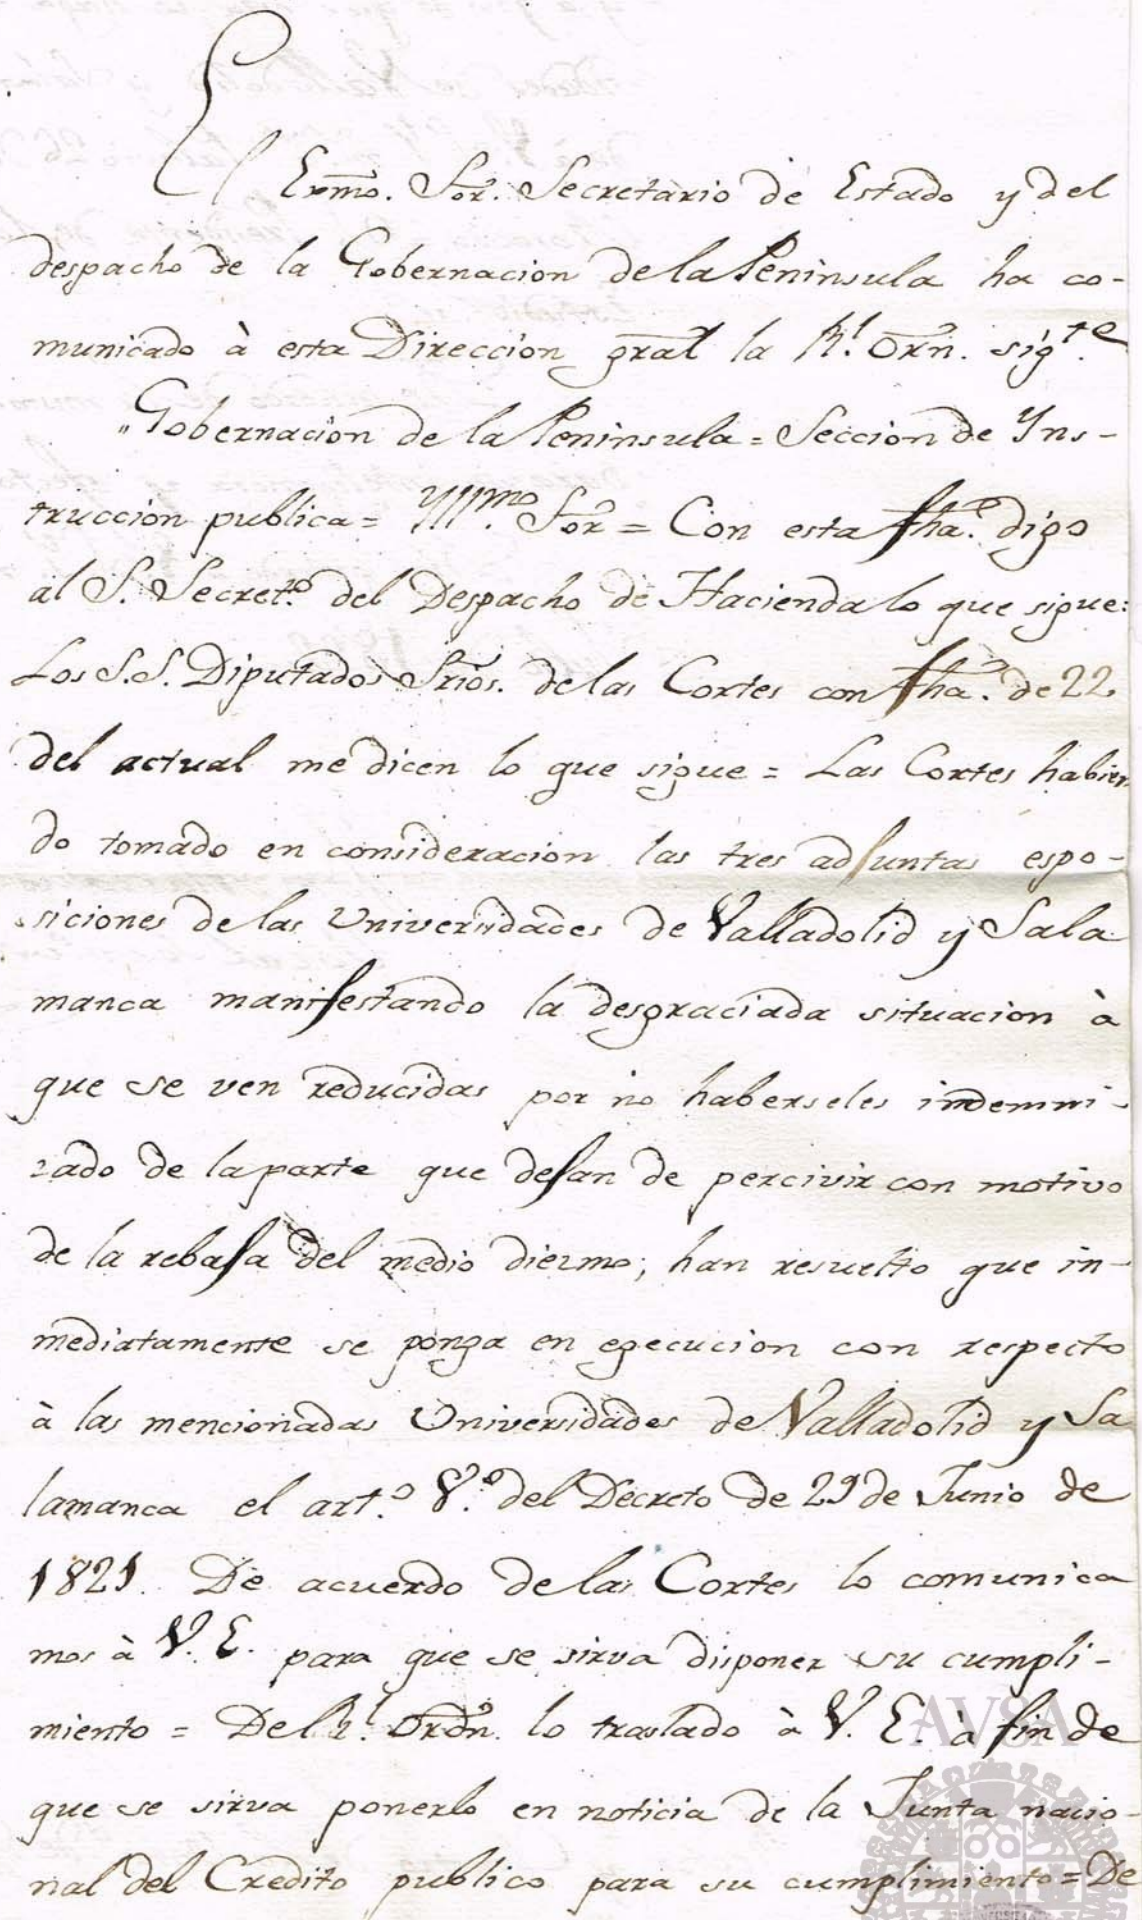 El Exmo. Sor. Secretario de Estado y del
despacho de la Gobernacion de la Peninsula ha co-
municado à esta Direccion gral la Rl. Orn. sigte.
"Gobernacion de la Peninsula = Seccion de Yns-
truccion publica = Yllmo. Sor = Con esta fha. digo
al S. Secreto. del Despacho de Hacienda lo que sigue:
Los S.S. Diputados Srios. de las Cortes con fha. de 22
del actual me dicen lo que sigue = Las Cortes habien
do tomado en consideracion las tres adjuntas espo-
siciones de las Universidades de Valladolid y Sala
manca manifestando la desgraciada situacion à
que se ven reducidas por no haberseles indemni-
zado de la parte que dejan de percivir con motivo
de la rebaja del medio diezmo; han resuelto que in-
mediatamente se ponga en egecucion con respecto
à las mencionadas Universidades de Valladolid y Sa
lamanca el arto. 8.o del Decreto de 29 de Junio de
1821. De acuerdo de las Cortes lo comunica
mos à V. E. para que se sirva disponer su cumpli-
miento = De Rl. Ordn. lo traslado à V. E. à fin de
que se sirva ponerlo en noticia de la Junta nacio-
nal del Credito publico para su cumplimiento = De
AVSA